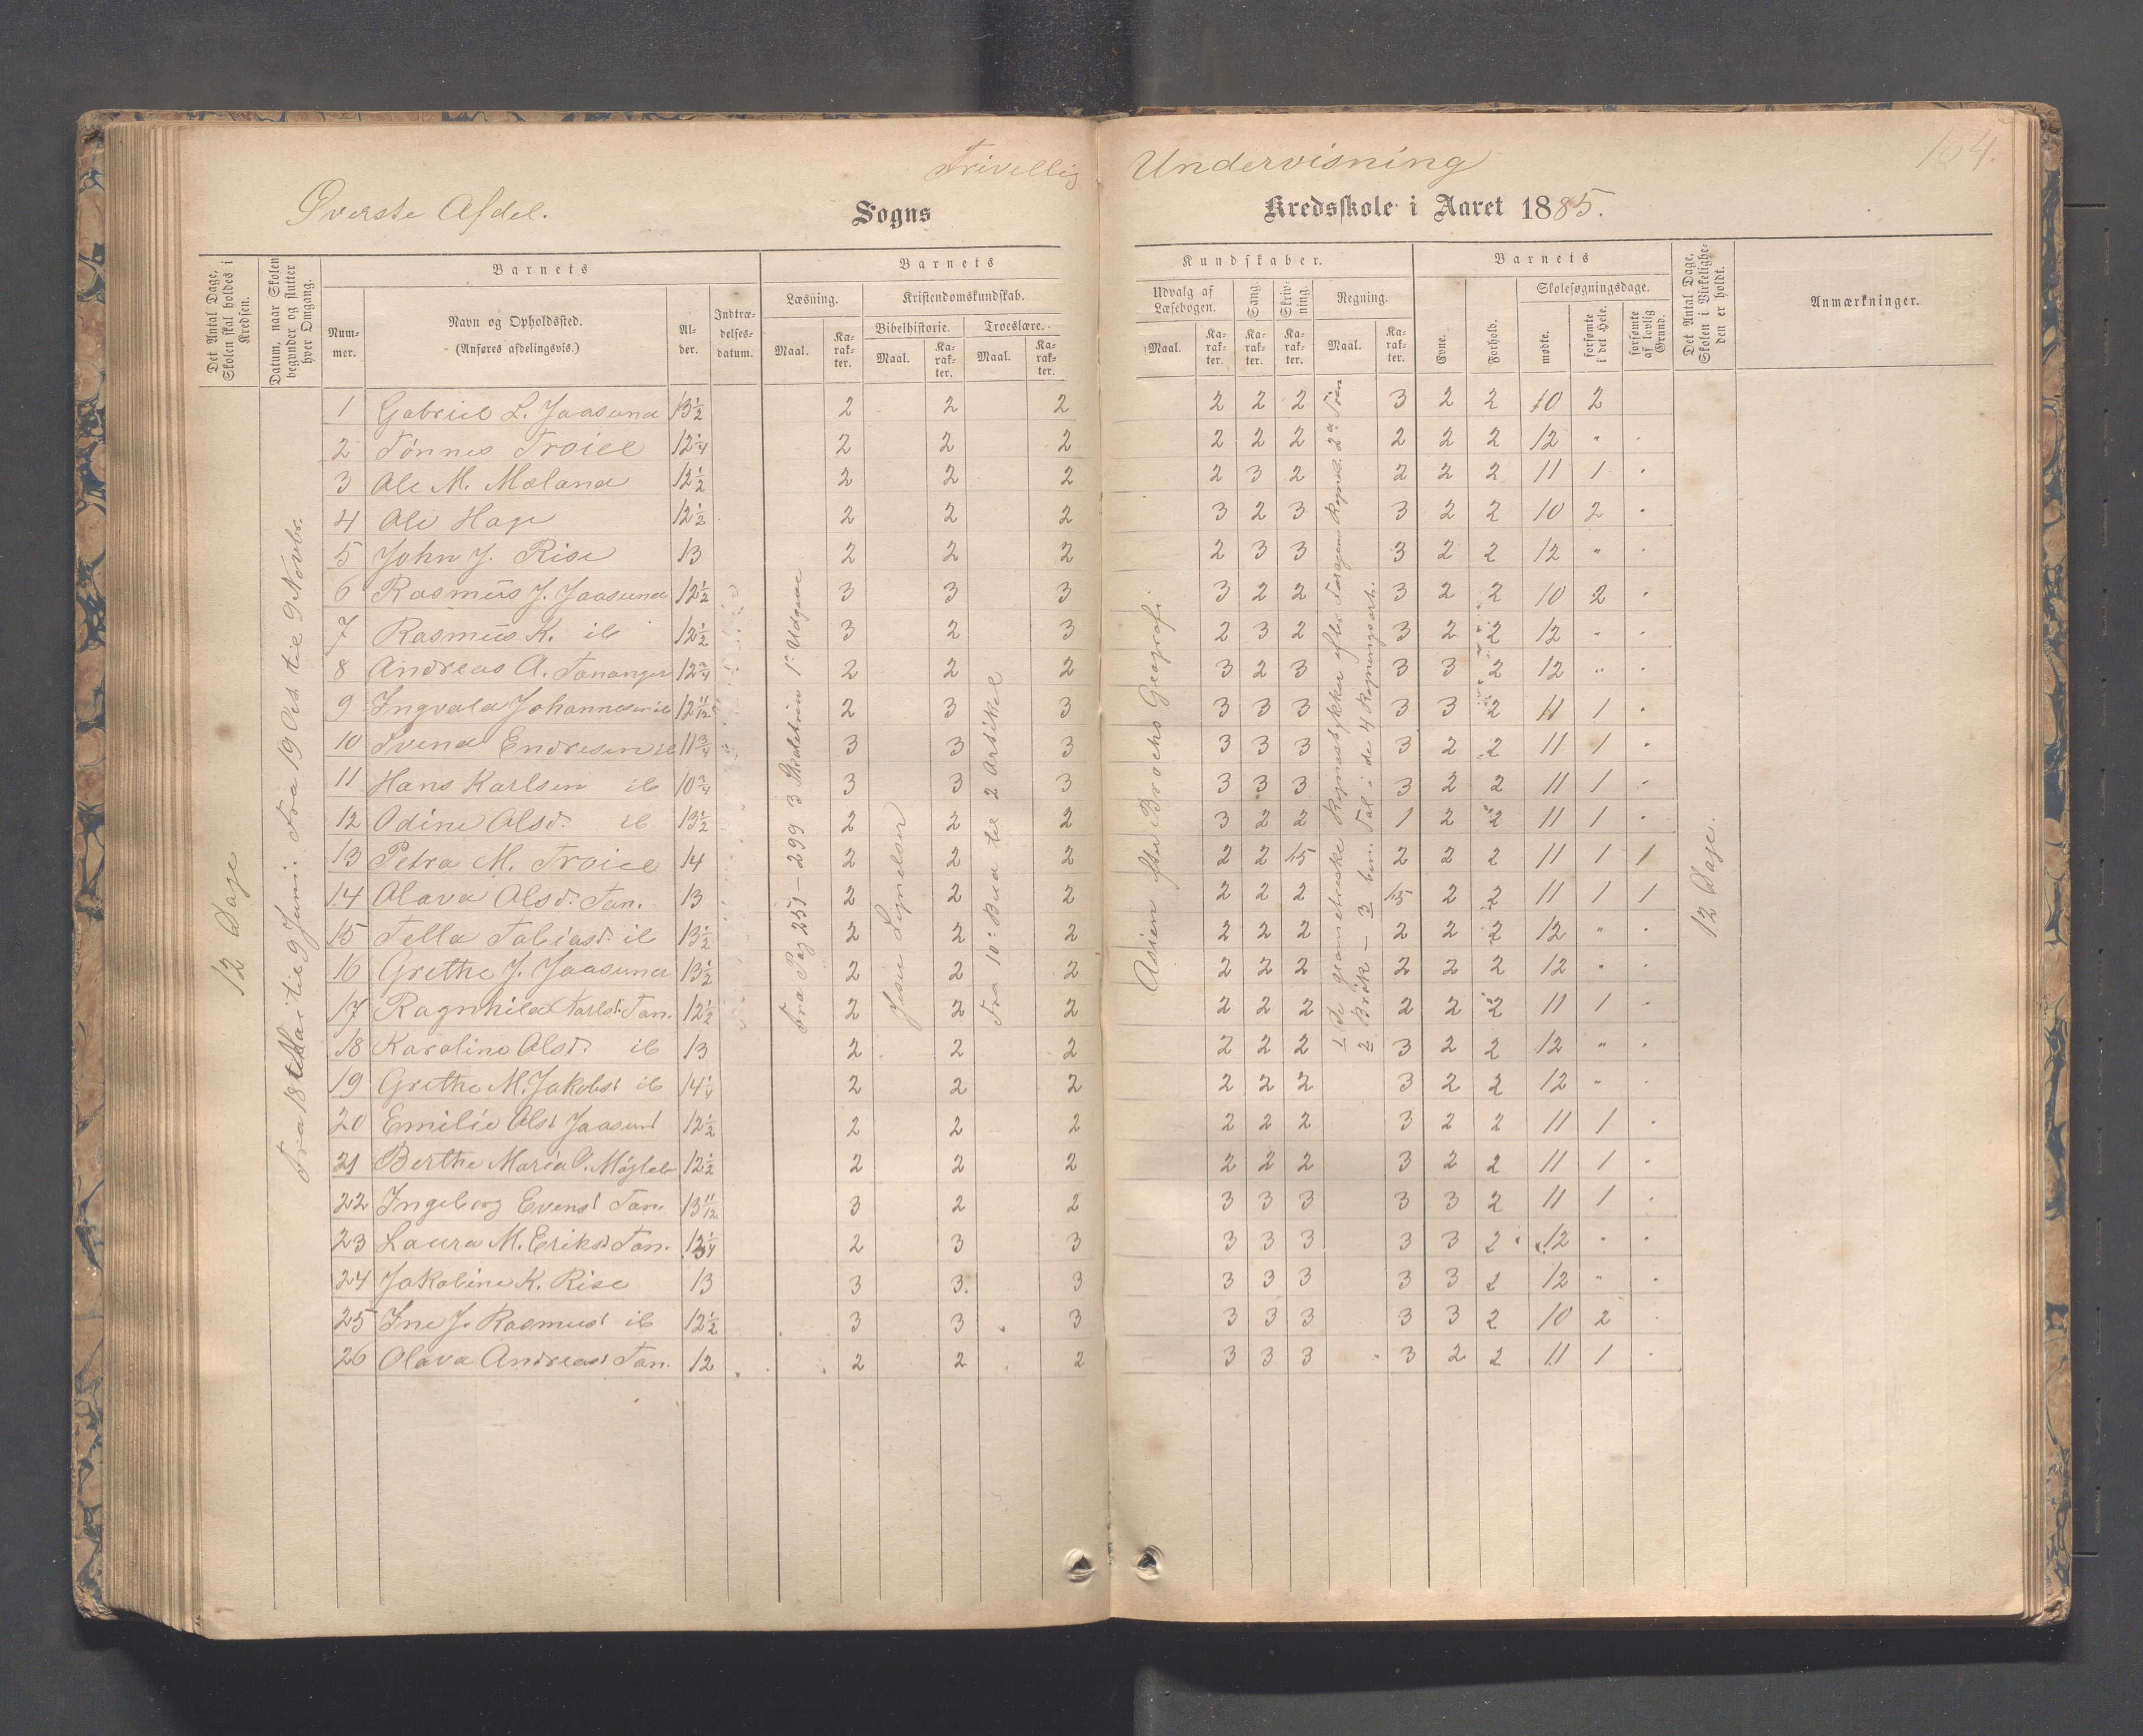 Frivellig Undervisning 154.
Øverste Afdel. Sogns Kredsskole i Aaret 1885.
Det Antal Dage, Skolen skal holdes i Kredsen.
Datum, naar Skolen begynder og slutter hver Omgang.
Barnets
Nummer.
Navn og Opholdssted.
(Anføres afdelingsvis.)
Alder.
Indtrædelsesdatum.
Barnets Kundskaber.
Læsning. Maal. Karakter.
Kristendomskundskab.
Bibelhistorie. Maal. Karakter.
Troeslære. Maal. Karakter.
Udvalg af Læsebogen. Maal. Karakter.
Sang. Karakter.
Skrivning. Karakter.
Regning. Maal. Karakter.
Barnets
Evne.
Forhold.
Skolesøgningsdage.
mødte.
forsømte i det Hele.
forsømte af lovlig Grund.
Det Antal Dage, Skolen i Virkeligheden er holdt.
Anmærkninger.
12 Dage
Fra 18 Mai til 9 Juni. Fra 19 Oct til 9 Novbr.
Fra Pag 251 – 299 3 Skoletrin 1. Udgave
Jesu Lignelser
Fra 10: Bud til 2 Artikel
Asien efter Brochs Geografi
1 De geometriske Regnestykker efter
2 Brøk – 3 ben. Tal i de 4 Regningsart.
12 Dage.
1 Gabriel L. Jaasund 13½ 2 2 2 2 2 2 3 2 2 10 2
2 Tønnes Troiel 12¼ 2 2 2 2 2 2 2 2 2 12 " .
3 Ole M. Mæland 12½ 2 2 2 2 3 2 2 2 2 11 1 .
4 Ole Haga 12½ 2 2 2 3 2 3 3 2 2 10 2 .
5 John J. Rise 13 2 2 2 2 3 3 3 2 2 12 " .
6 Rasmus J. Jaasund 12½ 3 3 3 3 2 2 3 2 2 10 2 .
7 Rasmus K. ib 12½ 3 2 3 2 3 2 3 2 2 12 " .
8 Andreas A. Tananger 12¾ 2 2 2 3 2 3 3 3 2 12 " .
9 Ingvald Johannesen ib 12 11/12 2 3 3 3 3 3 3 3 2 11 1 .
10 Svend Endresen ib 11¾ 3 3 3 3 3 3 3 2 2 11 1 .
11 Hans Karlsen ib 10¾ 3 3 3 3 3 3 3 2 2 11 1 .
12 Odine Olsd. ib 13½ 2 2 2 3 2 2 1 2 2 11 1 .
13 Petra M. Troiel 14 2 2 2 2 2 1.5 2 2 2 11 1 1
14 Olava Olsd. Tan. 13 2 2 2 2 2 2 1.5 2 2 11 1 1
15 Tella Tobiasd. ib 13½ 2 2 2 2 2 2 2 2 2 12 " .
16 Grethe J. Jaasund 13½ 2 2 2 2 2 2 2 2 2 12 " .
17 Ragnhild Karlsd. Tan. 12½ 2 2 2 2 2 2 2 2 2 11 1 .
18 Karoline Olsd. ib 13 2 2 2 2 2 2 3 2 2 12 " .
19 Grethe M. Jakobsd ib 14¼ 2 2 2 2 2 2 3 2 2 12 " .
20 Emilie Olsd Jaasund 12½ 2 2 2 2 2 2 3 2 2 11 1 .
21 Berthe Maria 12½ 2 2 2 2 2 2 3 2 2 11 1 .
22 Ingeborg Evensd Tan. 13 11/12 3 2 2 3 3 3 3 3 2 11 1 .
23 Laura M. Eriksd Tan. 2 3 3 3 3 3 3 3 2 12 " .
24 Jakobine K. Rise 13 3 3 3 3 3 3 3 3 2 12 " .
25 Ine J. Rasmusd ib 12½ 3 3 3 3 3 3 3 3 2 10 2 .
26 Olava Andreasd Tan. 12 2 2 2 3 3 3 3 2 2 11 1 .